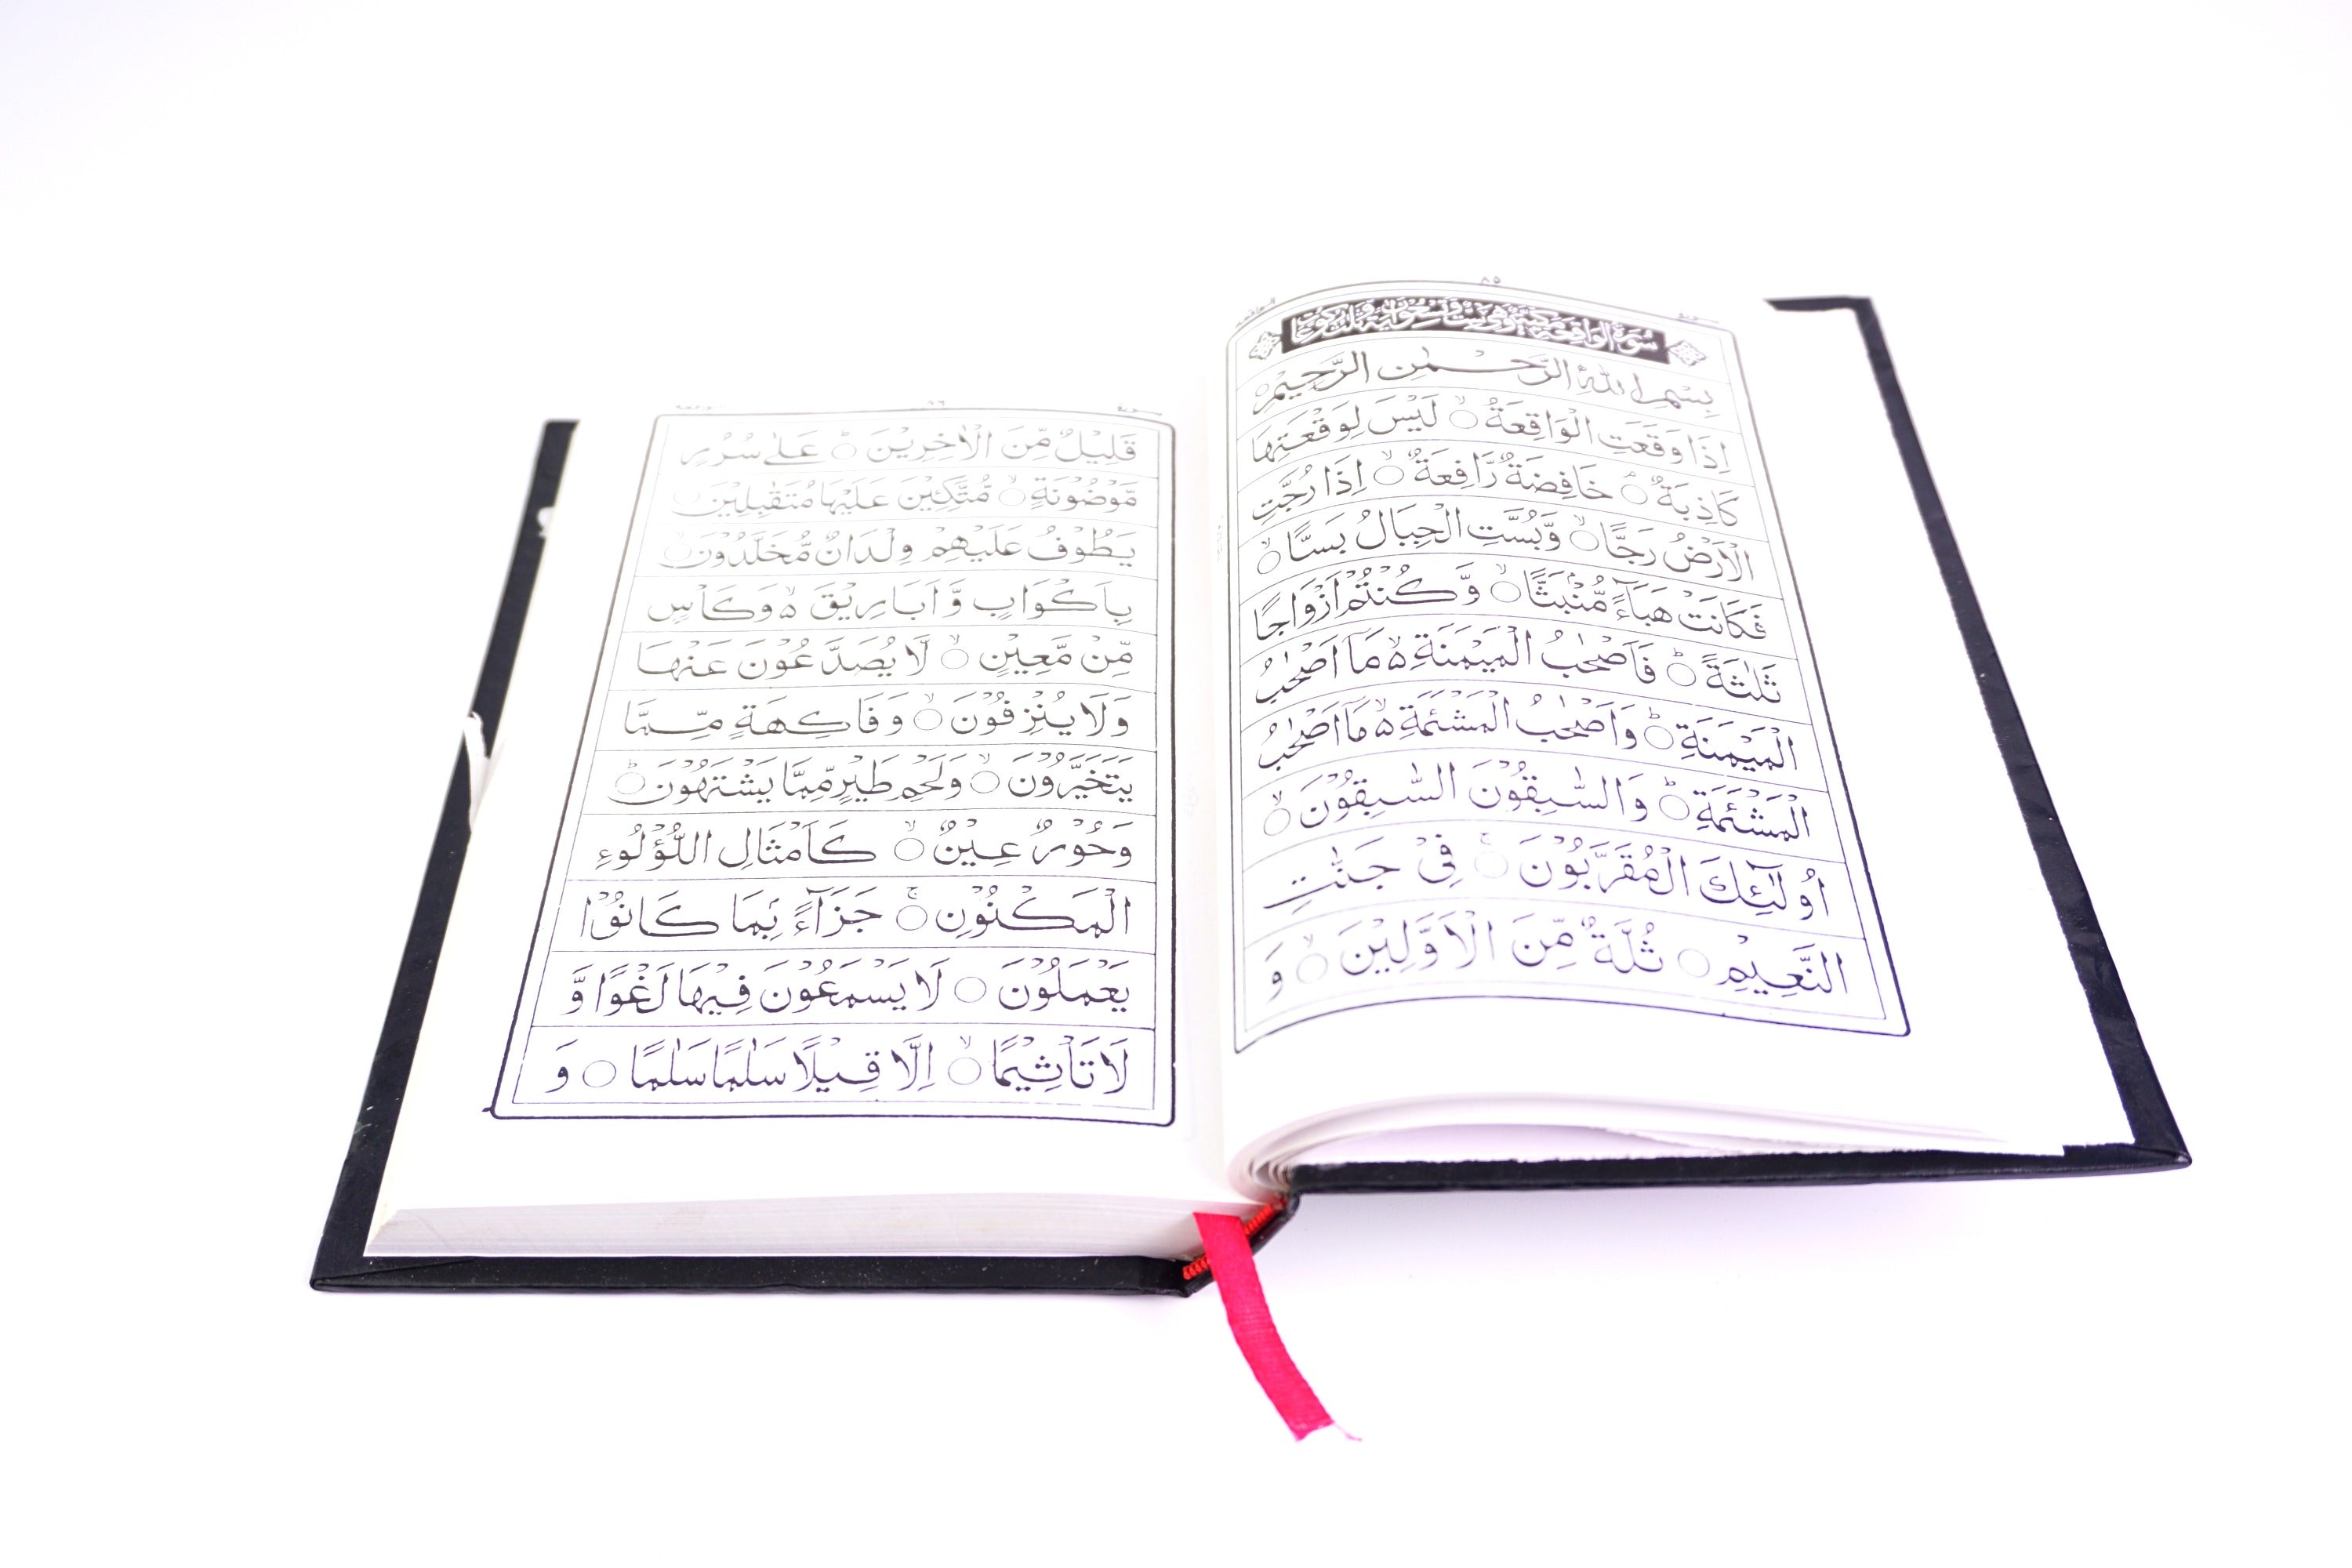 ٨٥
سُوْرَةُ الْوَاقِعَةِ مَكِّيَّةٌ وَّهِيَ سِتٌّ وَّتِسْعُوْنَ اٰيَةً وَّثَلٰثُ رُكُوْعَاتٍ
بِسْمِ اللّٰهِ الرَّحْمٰنِ الرَّحِيْمِ ○
اِذَا وَقَعَتِ الْوَاقِعَةُ ○ۙ لَيْسَ لِوَقْعَتِهَا
كَاذِبَةٌ ○ۘ خَافِضَةٌ رَّافِعَةٌ ○ۙ اِذَا رُجَّتِ
الْاَرْضُ رَجًّا ○ۙ وَّبُسَّتِ الْجِبَالُ بَسًّا ○ۙ
فَكَانَتْ هَبَآءً مُّنْۢبَثًّا ○ۙ وَّكُنْتُمْ اَزْوَاجًا
ثَلٰثَةً ○ؕ فَاَصْحٰبُ الْمَيْمَنَةِ ۵ۙ مَاۤ اَصْحٰبُ
الْمَيْمَنَةِ ○ؕ وَاَصْحٰبُ الْمَشْئَمَةِ ۵ۙ مَاۤ اَصْحٰبُ
الْمَشْئَمَةِ ○ؕ وَالسّٰبِقُوْنَ السّٰبِقُوْنَ ○ۙ
اُولٰٓئِكَ الْمُقَرَّبُوْنَ ○ۚ فِيْ جَنّٰتِ
النَّعِيْمِ ○ ثُلَّةٌ مِّنَ الْاَوَّلِيْنَ ○ۙ وَ
قَلِيْلٌ مِّنَ الْاٰخِرِيْنَ ○ؕ عَلٰى سُرُرٍ
مَّوْضُوْنَةٍ ○ۙ مُّتَّكِـِٕيْنَ عَلَيْهَا مُتَقٰبِلِيْنَ ○
يَطُوْفُ عَلَيْهِمْ وِلْدَانٌ مُّخَلَّدُوْنَ ○ۙ
بِاَكْوَابٍ وَّاَبَارِيْقَ ۵ۙ وَكَاْسٍ
مِّنْ مَّعِيْنٍ ○ۙ لَّا يُصَدَّعُوْنَ عَنْهَا
وَلَا يُنْزِفُوْنَ ○ۙ وَفَاكِهَةٍ مِّمَّا
يَتَخَيَّرُوْنَ ○ۙ وَلَحْمِ طَيْرٍ مِّمَّا يَشْتَهُوْنَ ○ؕ
وَحُوْرٌ عِيْنٌ ○ۙ كَاَمْثَالِ اللُّؤْلُوءِ
الْمَكْنُوْنِ ○ۚ جَزَآءًۢ بِمَا كَانُوْا
يَعْمَلُوْنَ ○ لَا يَسْمَعُوْنَ فِيْهَا لَغْوًا وَّ
لَا تَاْثِيْمًا ○ۙ اِلَّا قِيْلًا سَلٰمًا سَلٰمًا ○ وَ